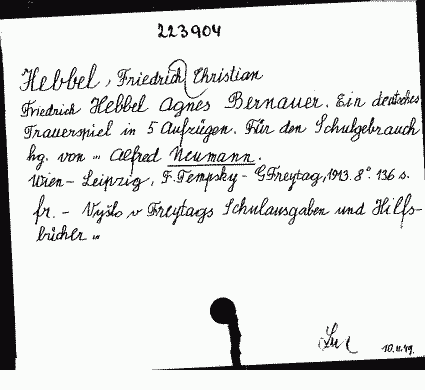 223904
Hebbel, Friedrich Christian
Friedrich Hebbel Agnes Bernauer. Ein deutsches
Trauerspiel in 5 Aufzügen. Für den Schulgebrauch
hg. von „ Alfred Neumann.
Wien - Leipzig, F. Tempsky - G Freytag, 1913. 8°. 136 s.
fr. - Vyšlo v Freytags Schulausgaben und Hilfs-
bücher „
10.11.49.